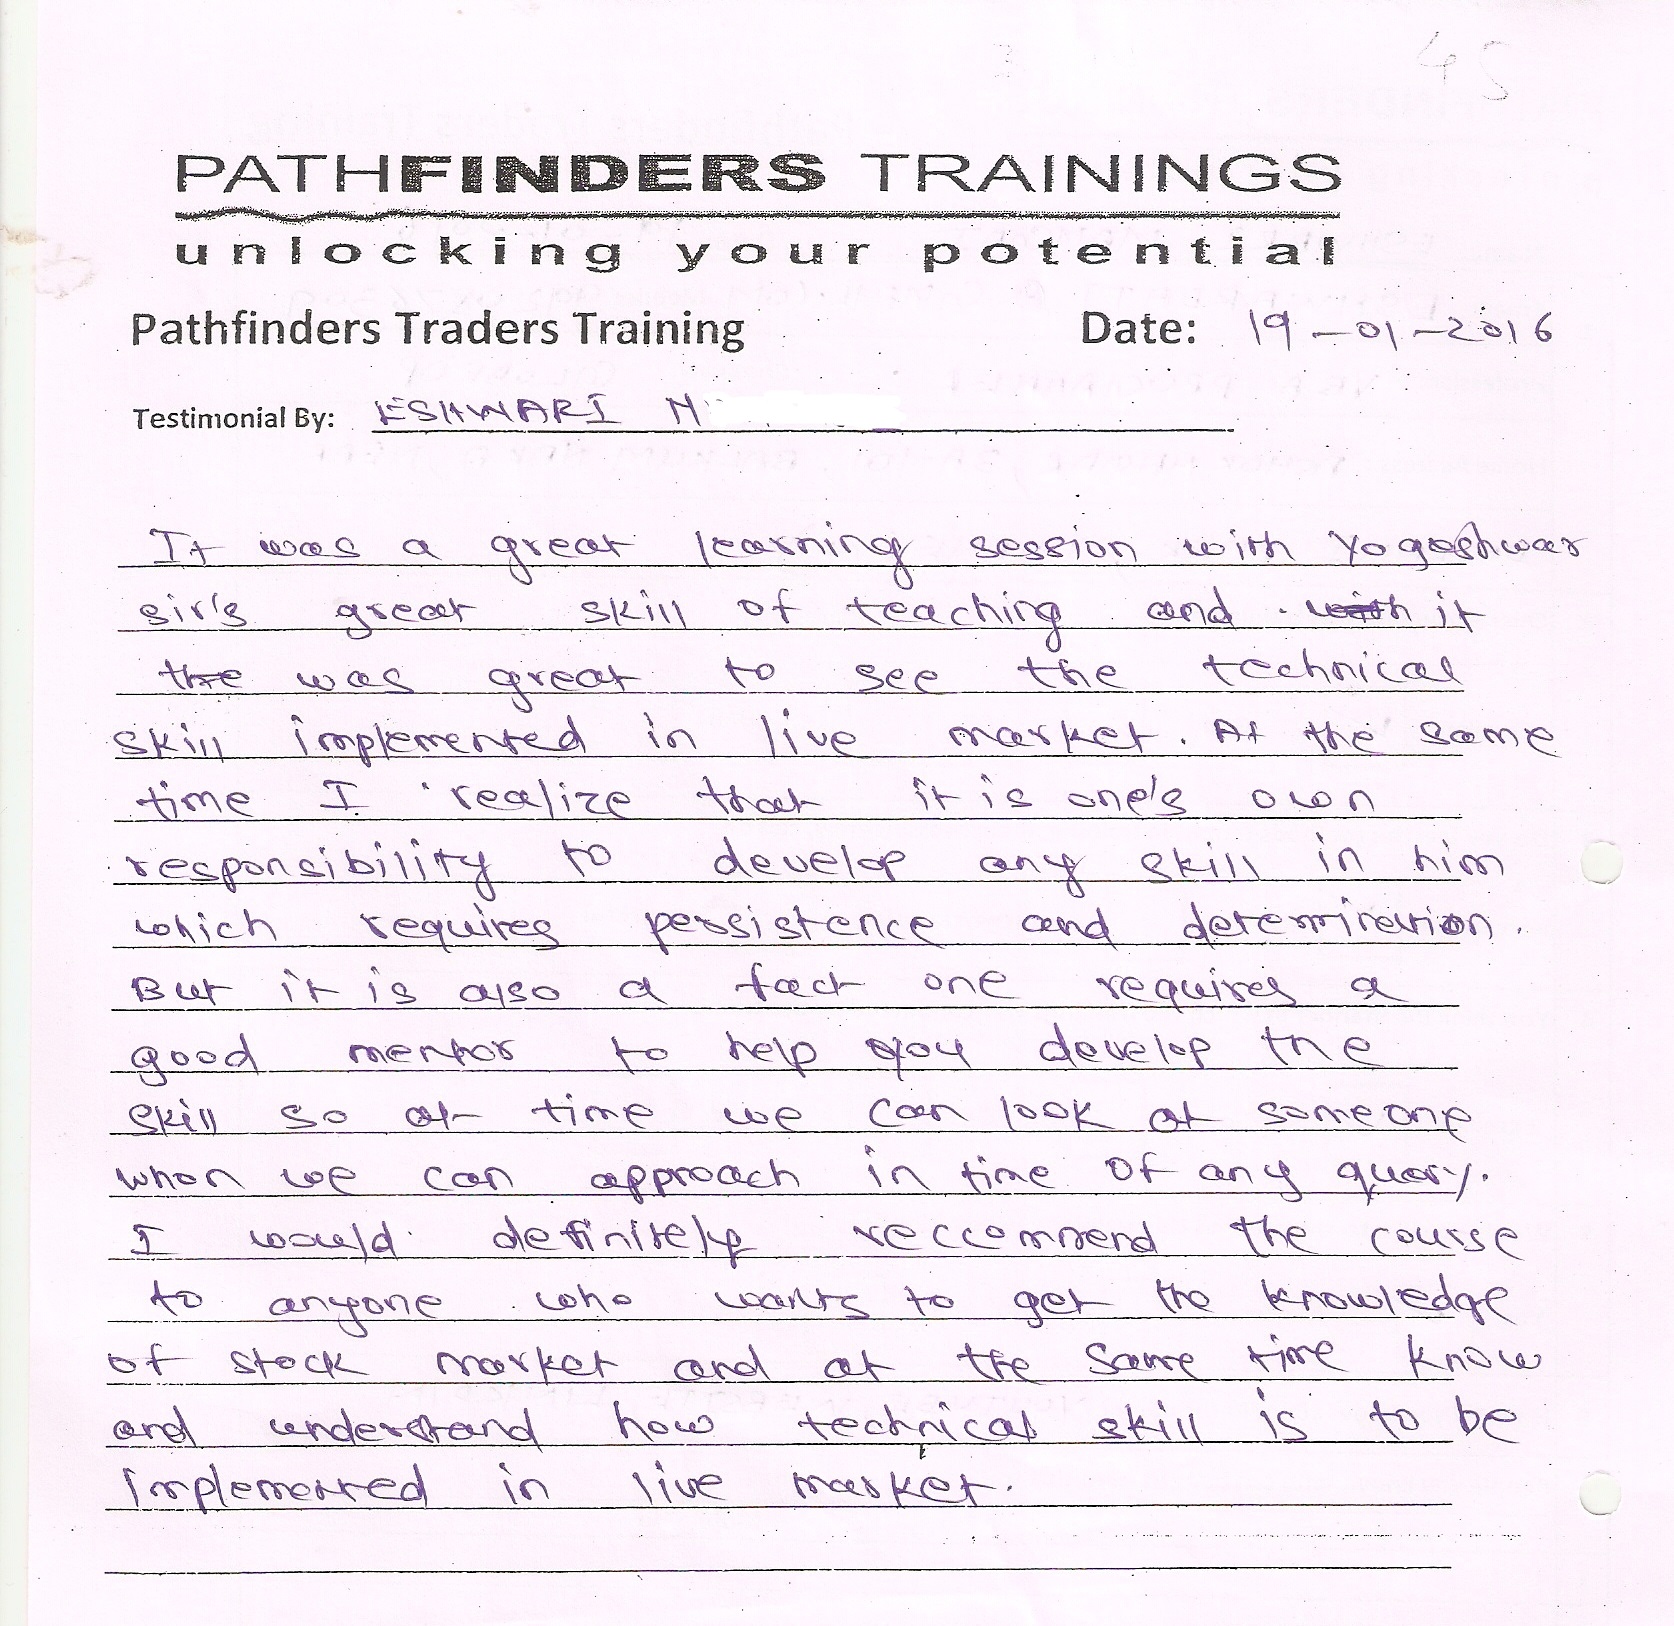 45
PATHFINDERS TRAININGS
unlocking your potential
Pathfinders Traders Training Date: 19-01-2016
Testimonial By: ESHWARI M
It was a great learning session with Yogeshwar
sir's great skill of teaching and with it
the was great to see the technical
skill implemented in live market. At the same
time I realize that it is one's own
responsibility to develop any skill in him
which requires persistence and determination.
But it is also a fact one requires a
good mentor to help you develop the
skill so at time we can look at someone
whon we can approach in time of any query.
I would definitely reccommend the course
to anyone who wants to get the knowledge
of stock market and at the same time know
and understand how technical skill is to be
implemented in live market.